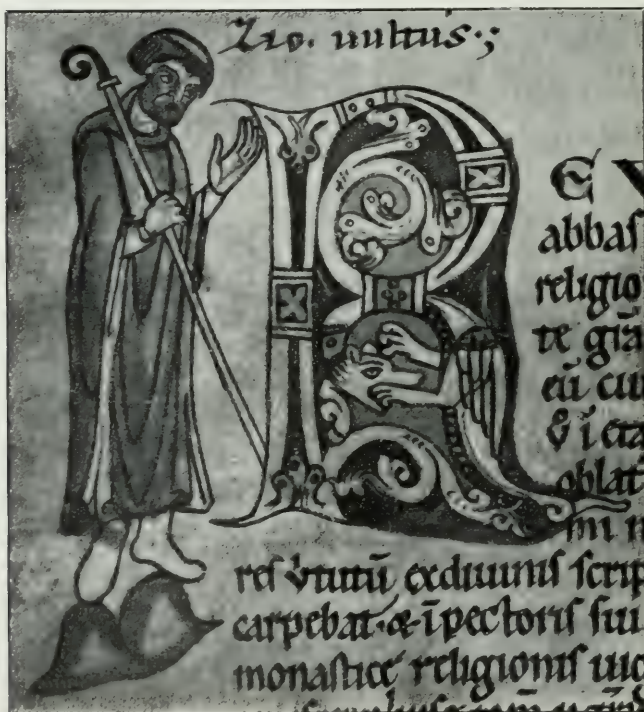 tio. uultus.;
R E
abbas
religio
te gr̄a
eū cu
& ī eta
oblat
mi n
res v̓tutū exdiuinis scrip
carpebat · & ī pectoris sui
monastice religionis